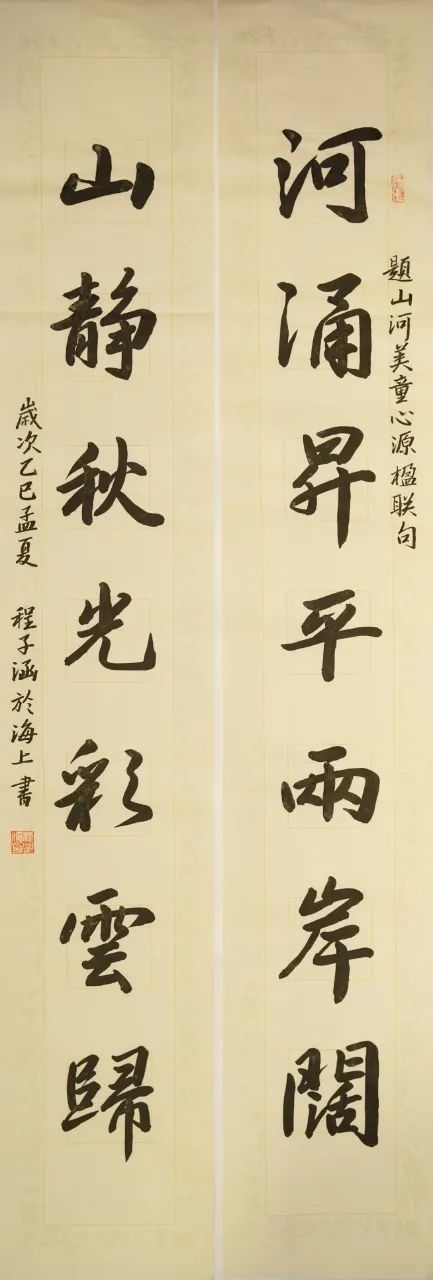 題山河美童心源楹联句
河涌昇平兩岸闊
山静秋光彩雲歸
歲次乙巳孟夏 程子涵於海上書